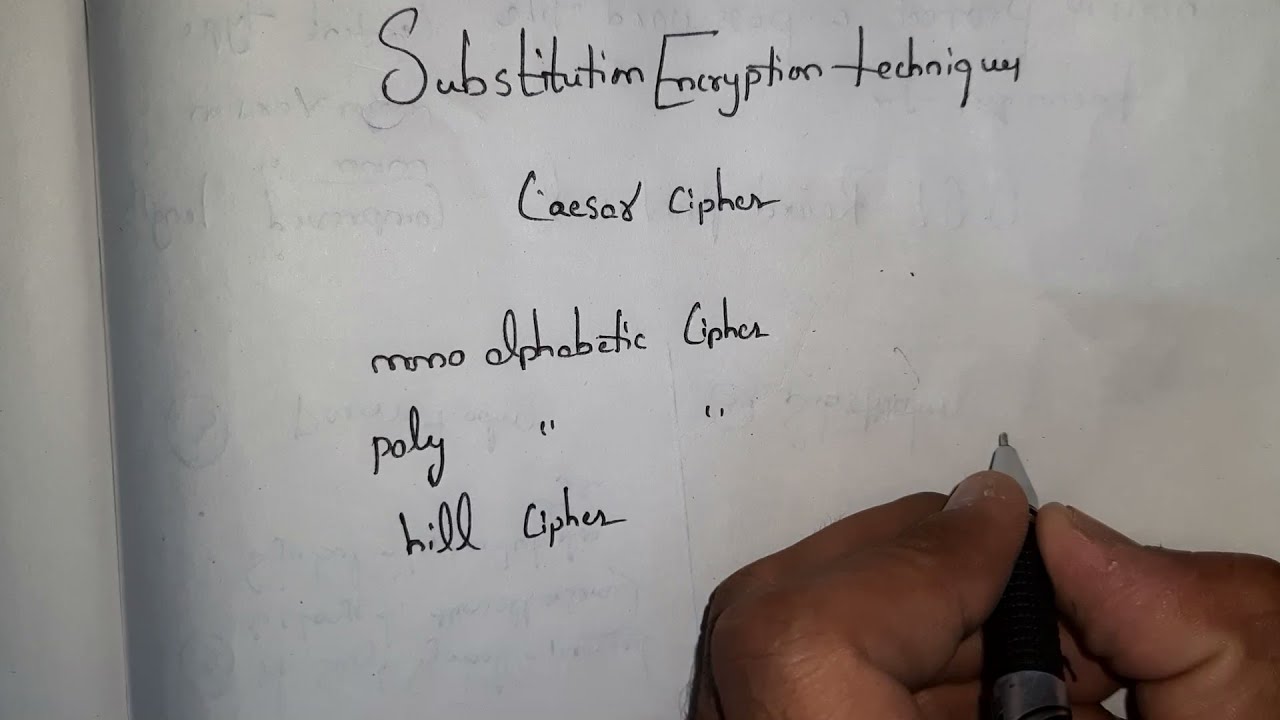 Substitution Encryption techniques
Caesar Cipher
mono alphabetic Cipher
poly " "
hill Cipher